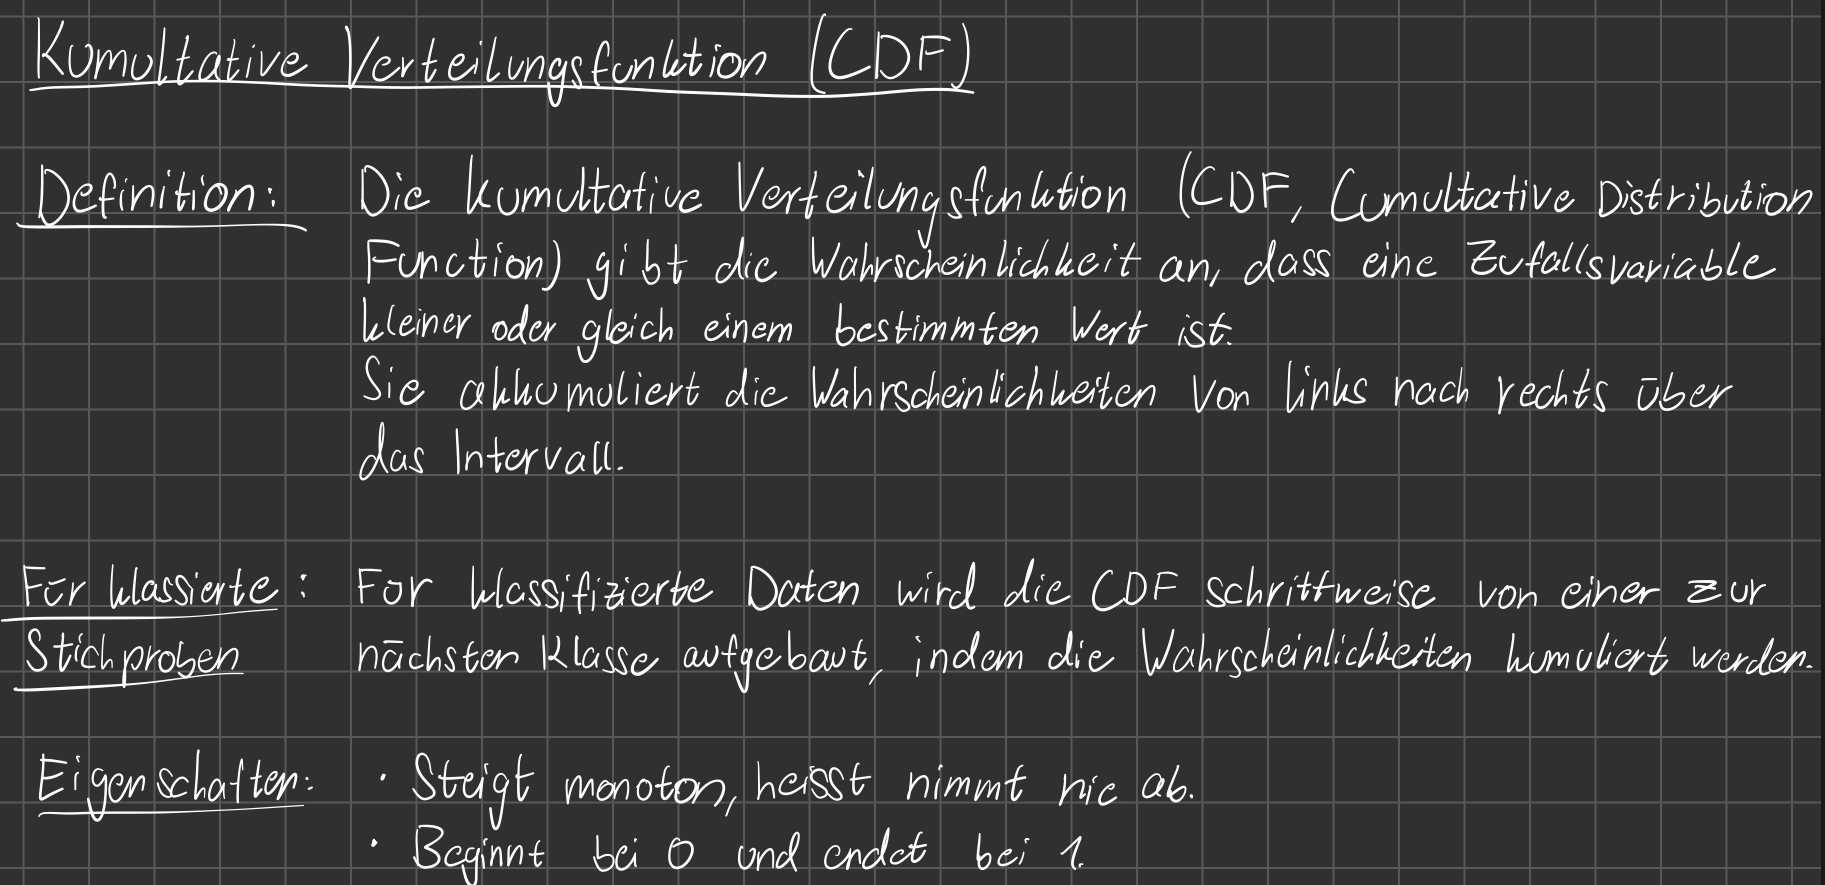 Kumultative Verteilungsfunktion (CDF)
Definition: Die kumultative Verteilungsfunktion (CDF, Cumultative Distribution
Function) gibt die Wahrscheinlichkeit an, dass eine Zufallsvariable
kleiner oder gleich einem bestimmten Wert ist.
Sie akkumuliert die Wahrscheinlichkeiten von links nach rechts über
das Intervall.
Für klassierte : Für klassifizierte Daten wird die CDF schrittweise von einer zur
Stichproben nächsten Klasse aufgebaut, indem die Wahrscheinlichkeiten kumuliert werden.
Eigenschaften: · Steigt monoton, heisst nimmt nie ab.
· Beginnt bei 0 und endet bei 1.